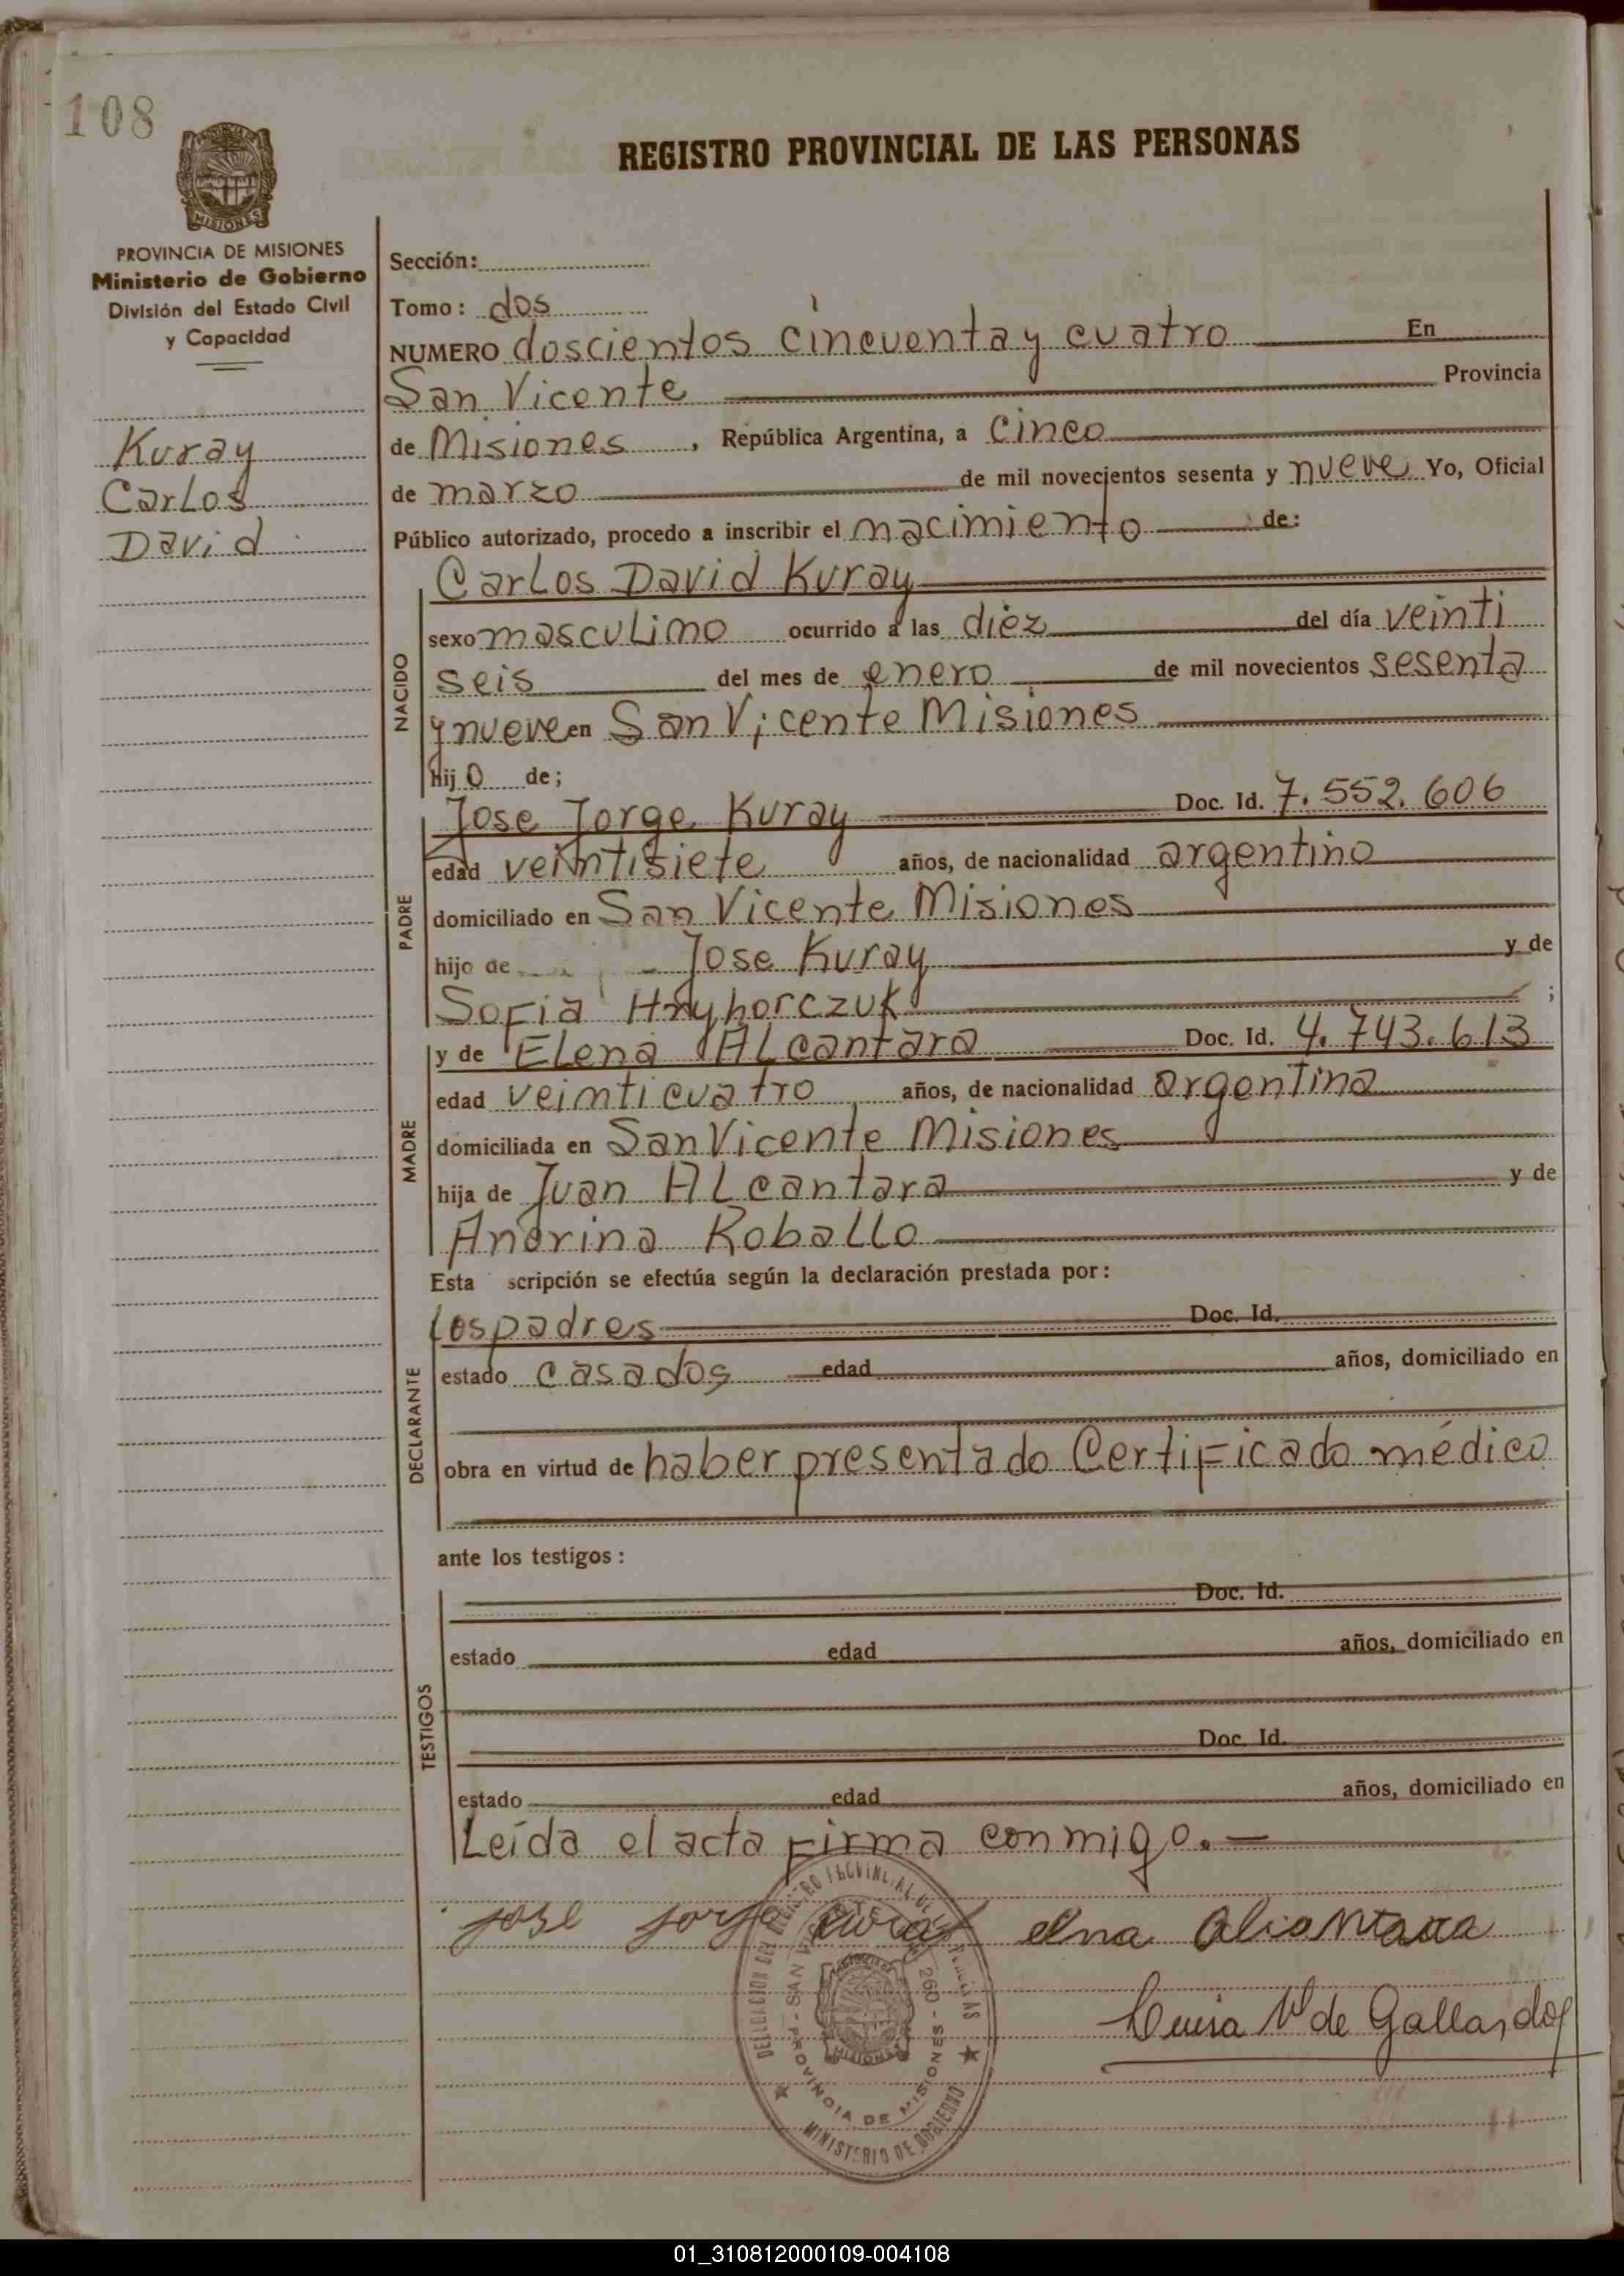 108
REGISTRO PROVINCIAL DE LAS PERSONAS
MISIONES
PROVINCIA DE MISIONES
Ministerio de Gobierno
División del Estado Civil
y Capacidad
Kuray
Carlos
David
Sección:
Tomo: dos
NUMERO doscientos cincuenta y cuatro En
San Vicente Provincia
de Misiones, República Argentina, a cinco
de marzo de mil novecientos sesenta y nueve Yo, Oficial
Público autorizado, procedo a inscribir el nacimiento de:
NACIDO
Carlos David Kuray
sexo masculino ocurrido a las diez del día veinti
seis del mes de enero de mil novecientos sesenta
y nueve en San Vicente Misiones
hijo de;
PADRE
Jose Jorge Kuray Doc. Id. 7.552.606
edad veintisiete años, de nacionalidad argentino
domiciliado en San Vicente Misiones
hijo de Jose Kuray y de
Sofia Hryhorczuk ;
MADRE
y de Elena Alcantara Doc. Id. 4.743.613
edad veinticuatro años, de nacionalidad argentina
domiciliada en San Vicente Misiones
hija de Juan Alcantara y de
Andrina Roballo
Esta scripción se efectúa según la declaración prestada por:
DECLARANTE
Los padres Doc. Id.
estado casados edad años, domiciliado en
obra en virtud de haber presentado Certificado médico
ante los testigos:
TESTIGOS
Doc. Id.
estado edad años, domiciliado en
Doc. Id.
estado edad años, domiciliado en
Leída el acta firma conmigo.—
jose jorge curay elna aliantara
Luisa Vd de Gallardo
SAN VICENTE
260
PROVINCIA DE MISIONES
MISIONES
MINISTERIO DE GOBIERNO
01_310812000109-004108